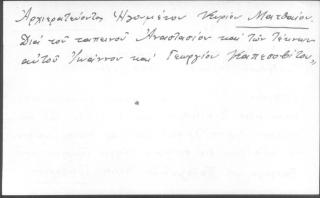 Ἀρχιερατεύοντος Ἡγουμένου Κυρίου Ματθαίου.
Διά τοῦ ταπεινοῦ Ἀναστασίου καί τῶν τέκνων
αὐτοῦ Ἰωάννου καί Γεωργίου Καπεσοβίτου„